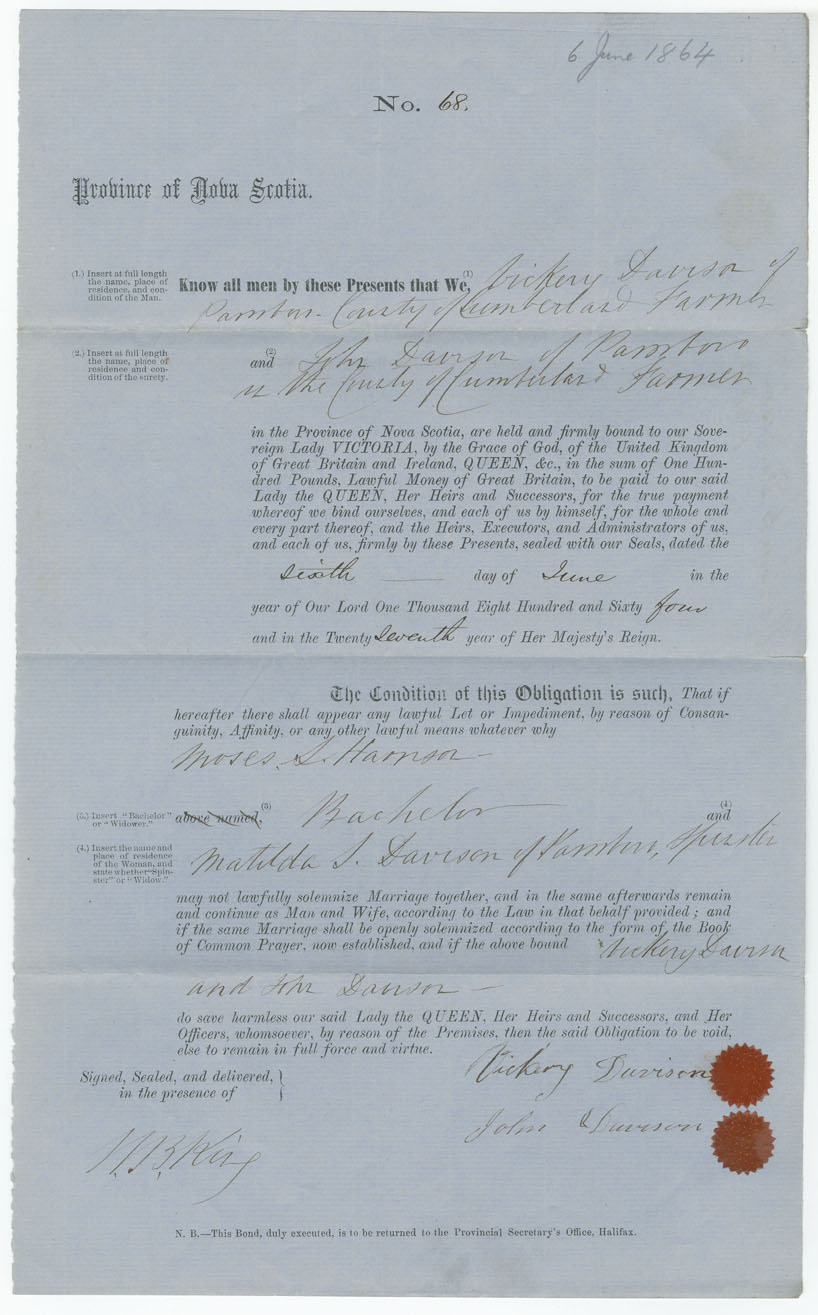 6 June 1864
No. 68.
Province of Nova Scotia.
(1.) Insert at full length
the name, place of
residence, and con-
dition of the Man.
Know all men by these Presents that We,(1) Vickery Davison of
Parrsboro County of Cumberland Farmer
(2.) Insert at full length
the name, place of
residence and con-
dition of the surety.
and (2) John Davison of Parrsboro
in the County of Cumberland Farmer
in the Province of Nova Scotia, are held and firmly bound to our Sove-
reign Lady VICTORIA, by the Grace of God, of the United Kingdom
of Great Britain and Ireland, QUEEN, &c., in the sum of One Hun-
dred Pounds, Lawful Money of Great Britain, to be paid to our said
Lady the QUEEN, Her Heirs and Successors, for the true payment
whereof we bind ourselves, and each of us by himself, for the whole and
every part thereof, and the Heirs, Executors, and Administrators of us,
and each of us, firmly by these Presents, sealed with our Seals, dated the
sixth day of June in the
year of Our Lord One Thousand Eight Hundred and Sixty four
and in the Twenty seventh year of Her Majesty's Reign.
The Condition of this Obligation is such, That if
hereafter there shall appear any lawful Let or Impediment, by reason of Consan-
guinity, Affinity, or any other lawful means whatever why
Moses S. Harrison
(3.) Insert "Bachelor"
or "Widower."
above named,(3) Bachelor (4) and
(4.) Insert the name and
place of residence
of the Woman, and
state whether "Spin-
ster" or "Widow."
Matilda S. Davison of Parrsboro, Spinster
may not lawfully solemnize Marriage together, and in the same afterwards remain
and continue as Man and Wife, according to the Law in that behalf provided; and
if the same Marriage shall be openly solemnized according to the form of the Book
of Common Prayer, now established, and if the above bound Vickery Davison
and John Davison
do save harmless our said Lady the QUEEN, Her Heirs and Successors, and Her
Officers, whomsoever, by reason of the Premises, then the said Obligation to be void,
else to remain in full force and virtue.
Signed, Sealed, and delivered,
in the presence of
Vickery Davison
John Davison
N. B.—This Bond, duly executed, is to be returned to the Provincial Secretary's Office, Halifax.